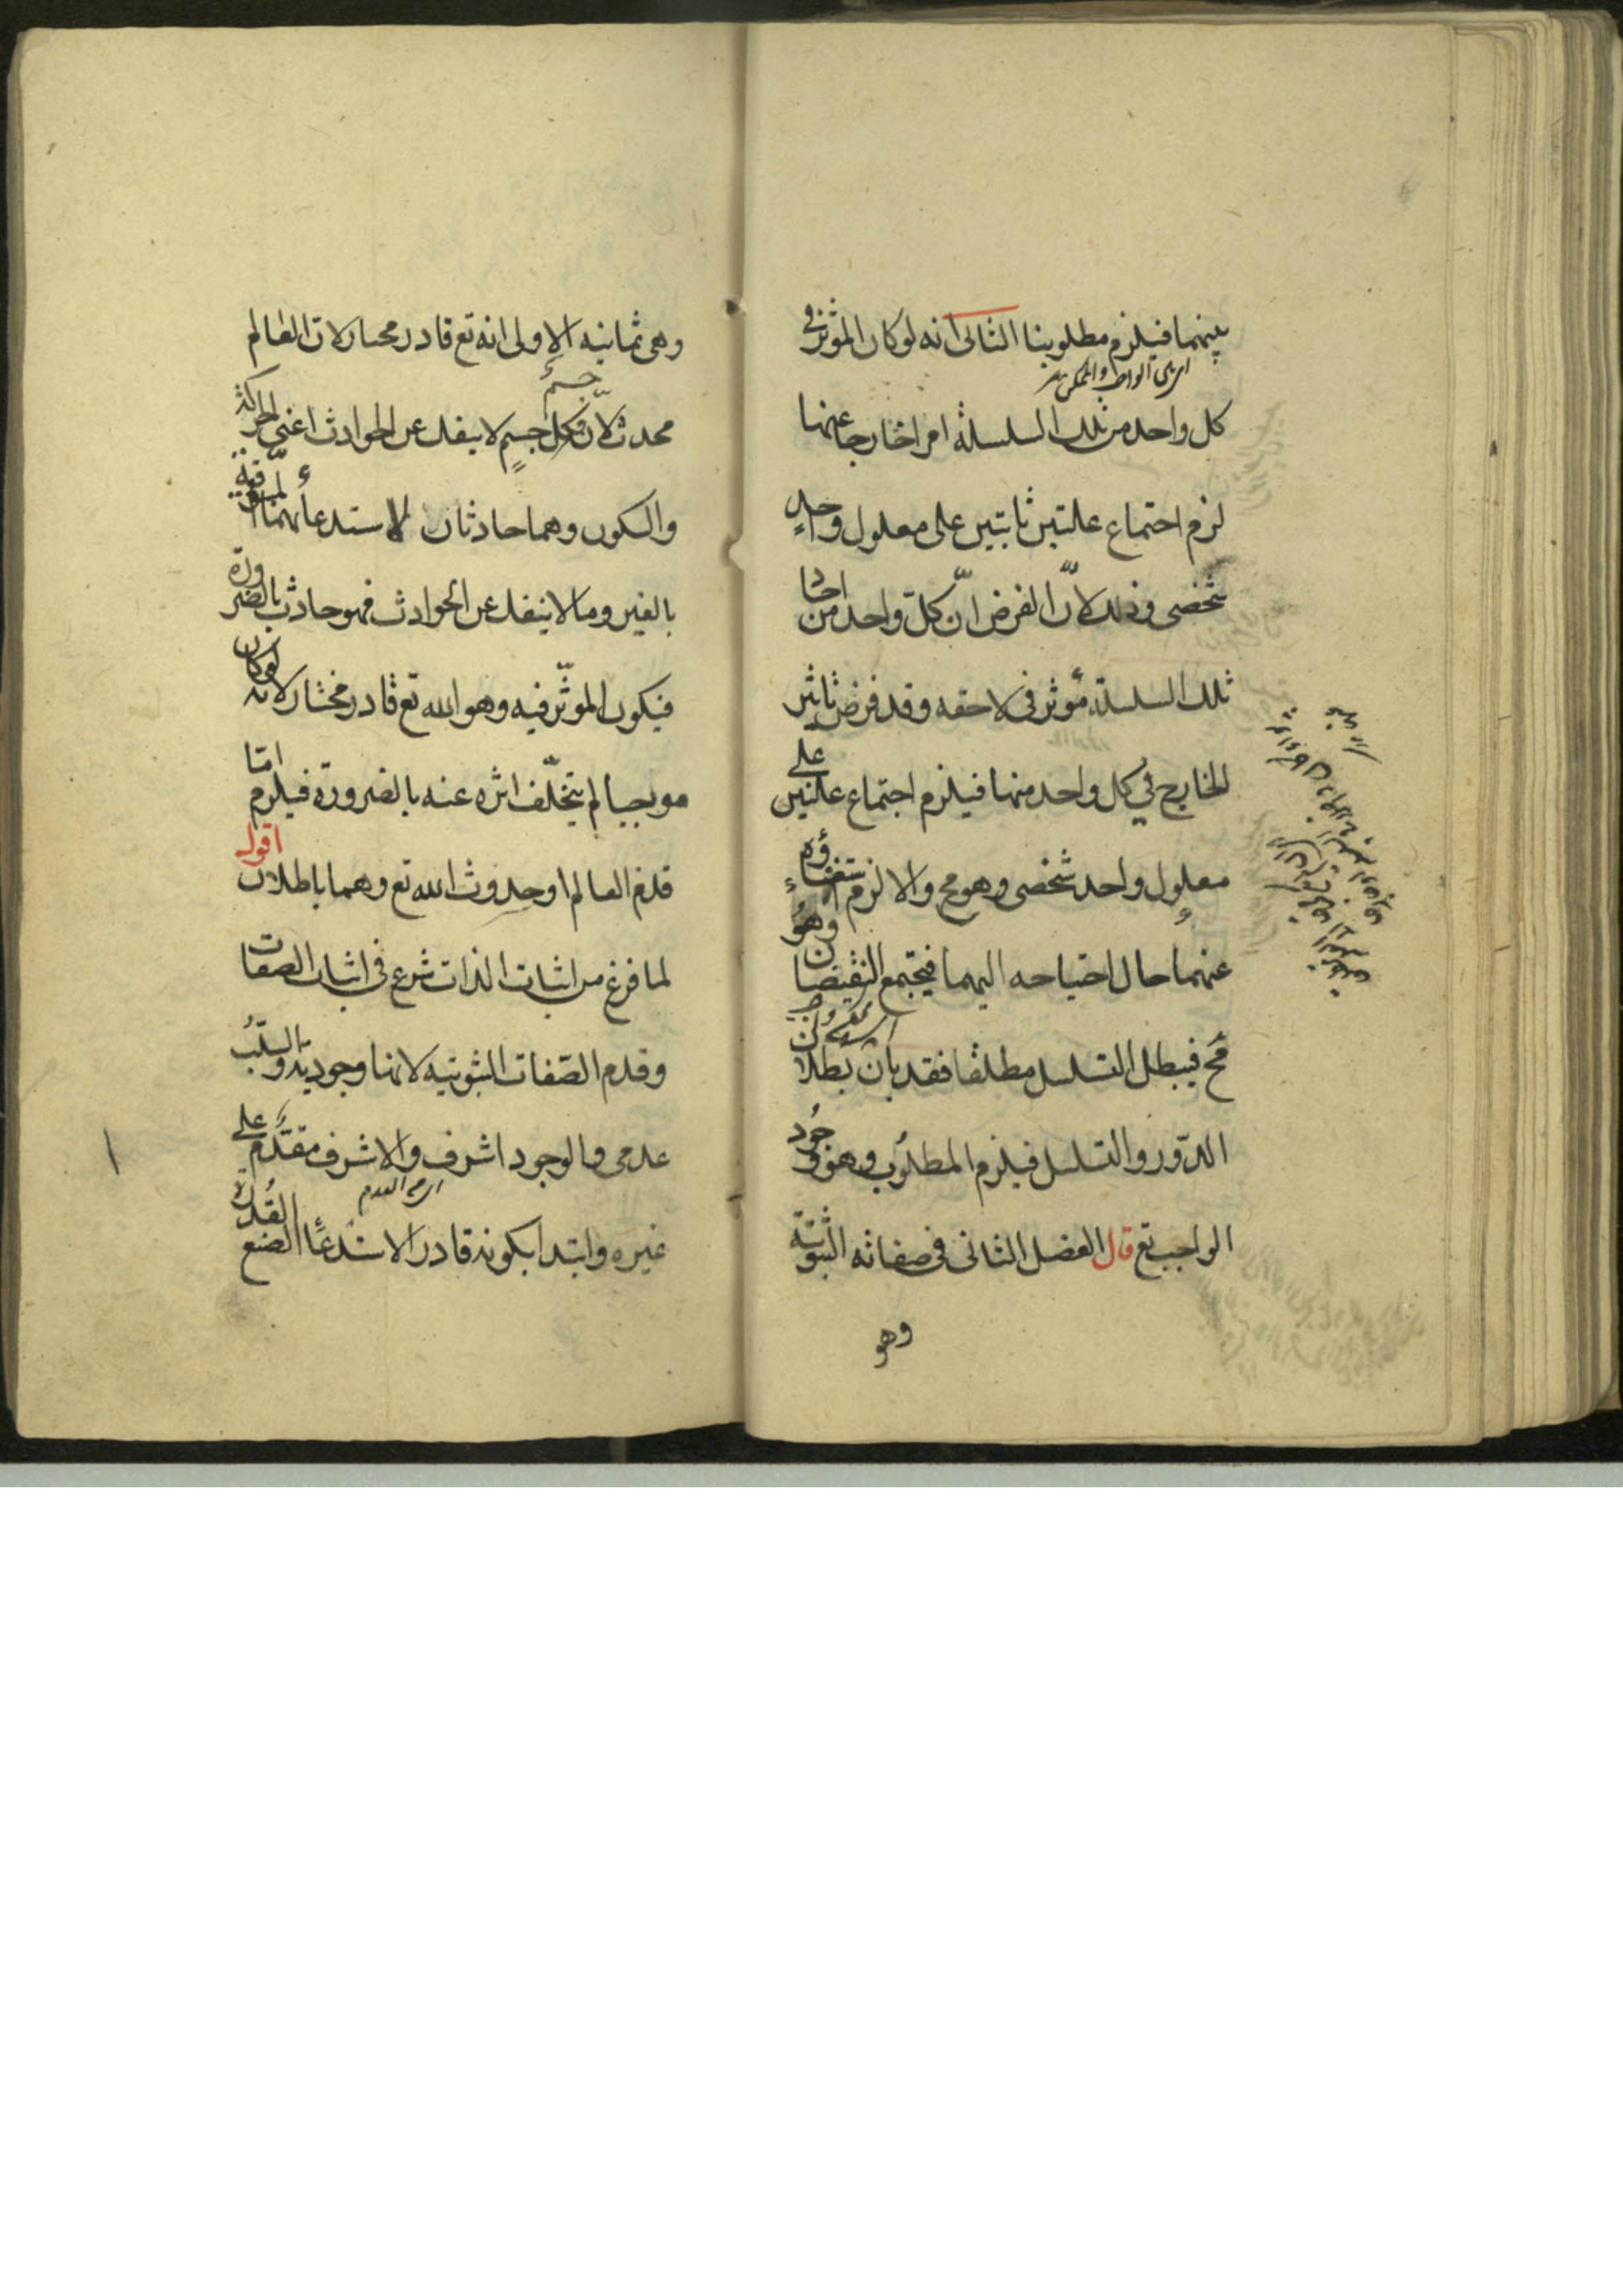 بينهما فيلزم مطلوبنا الثانى انه لو كان الموثر فى
اى بين الواجب والممكن
كل واحد من تلك السلسلة امرا خارجا عنها
لزم اجتماع علتين ثابتين على معلول واحدٍ
شخصى وذلك لانّ الفرض انّ كلّ واحد من احا
تلك السلسلة مؤثر فى لاحقه وقد فرض تاثير
الخارج فى كل واحد منها فيلزم اجتماع علتين على
معلول واحد شخصى وهو مح والا لزم استغناؤه
عنهما حال احتياجه اليهما فيجتمع النقيضان وهو
مح فيبطل التسلسل مطلقا فقد بان بطلان
الدّور والتسلسل فيلزم المطلوب وهو وجود
الواجب تع قال الفصل الثانى فى صفاته الثبوتية
وهو
وهى ثمانيه الاولى انه تع قادر مختار لان العالم
جسم
محدث لانّ كل جسم لا ينفك عن الحوادث اعنى الحركة
والسكون وهما حادثان لاستدعائهما المسبوقية
بالغير وما لا ينفك عن الحوادث فهو حادث بالضرورة
فيكون الموثّر فيه وهو الله تع قادر مختار لانه لو كان
موجبا لم يتخلّف اثره عنه بالضرورة فيلزم امّا
قدم العالم او حدوث الله تع وهما باطلان اقول
لما فرغ من اثبات الذات شرع فى اثبات الصفات
وقدم الصّفات الثبوتيه لانها وجودية والسلب
عدمى والوجود اشرف والاشرف مقدّم على
اى من العدم
غيره وابتدا بكونه قادرا لاستدعاء الصنع القدرة